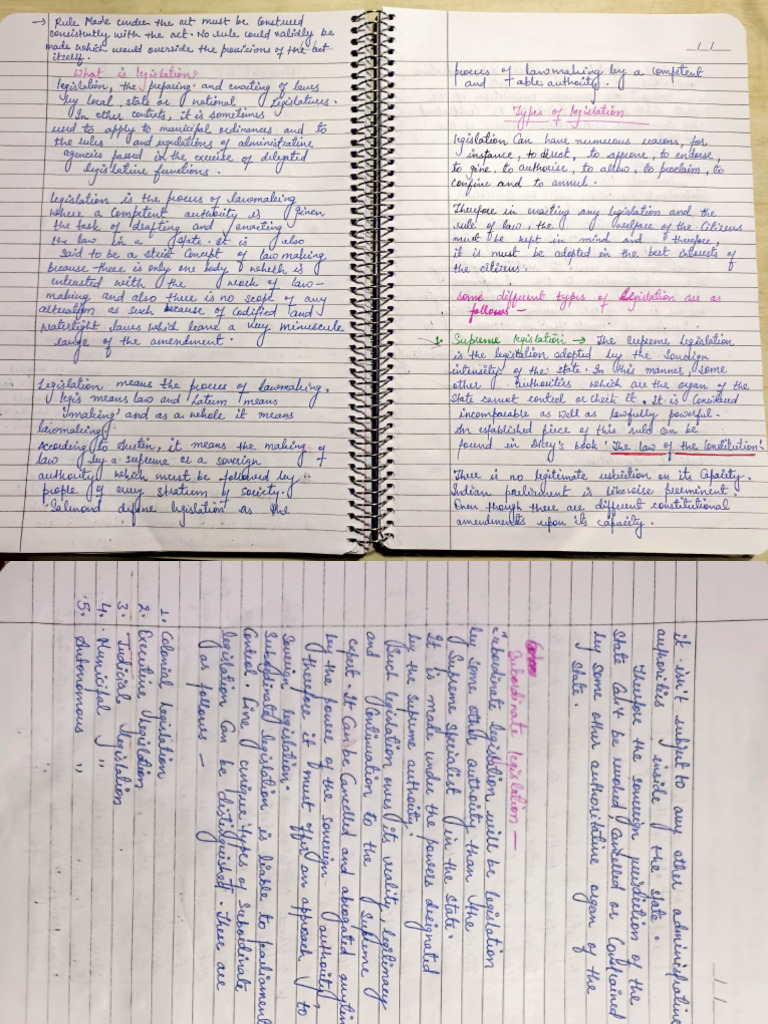 → Rule Made under the act must be Construed
consistently with the act. No rule could validly be
made which would override the provisions of the act
itself.
What is legislation?
legislation, the preparing and enacting of laws
by local, state or national legislatures.
In other contexts, it is sometimes
used to apply to municipal ordinances and to
the rules and regulations of administrative
agencies passed in the exercise of delegated
legislative functions.
legislation is the process of lawmaking
where a competent authority is given
the task of drafting and enacting
the law in a state. It is also
said to be a strict concept of law making
because there is only one body which is
entrusted with the work of law-
making and also there is no scope of any
alteration as such because of codified and
watertight laws which leave a very minuscule
range of the amendment.
Legislation means the process of lawmaking.
legis means law and Latum means
'making' and as a whole it means
lawmaking.
According to Austin, it means the making of
law by a supreme or a sovereign
authority which must be followed by
people of every stratum of society.
Salmond define legislation as the
process of lawmaking by a competent
and able authority.
Types of legislation
legislation Can have numerous reasons, for
instance, to direct, to approve, to endorse,
to give, to authorise, to allow, to proclaim, to
confine and to annul.
Therefore in enacting any legislation and the
rule of law, the welfare of the Citizens
must be kept in mind and therefore,
it is must be adopted in the best interests of
the citizens.
some different types of legislation are as
follows -
1. Supreme legislation → The supreme legislation
is the legislation adopted by the sovereign
intensity of the state. In this manner, some
other Authorities which are the organ of the
State cannot control or check it. It is Considered
incomparable as well as lawfully powerful.
An established piece of this rule can be
found in Dicey's book 'The law of the Constitution'.
There is no legitimate restriction on its Capacity.
Indian parliament is likewise preeminent.
Even though there are different constitutional
amendments upon its capacity.
it isn't subject to any other administrative
authorities inside the state.
Therefore the sovereign jurisdiction of the
state Can't be revoked, Cancelled or Constrained
by some other authoritative organ of the
state.
Subordinate legislation -
subordinate legislation will be legislation
by some other authority than the
Supreme specialist in the state.
It is made under the powers designated
by the supreme authority.
Such legislation owes its reality, legitimacy
and Continuation to the supreme
expert. It Can be Cancelled and abrogated anytime
by the power of the sovereign authority
therefore it must offer an approach to
Sovereign legislation.
Subordinate legislation is liable to parliament
Control. Five unique types of Subordinate
legislation Can be distinguished. There are
as follows -
1. Colonial legislation
2. Executive legislation
3. Judicial legislation
4. Municipal "
5. Autonomous "